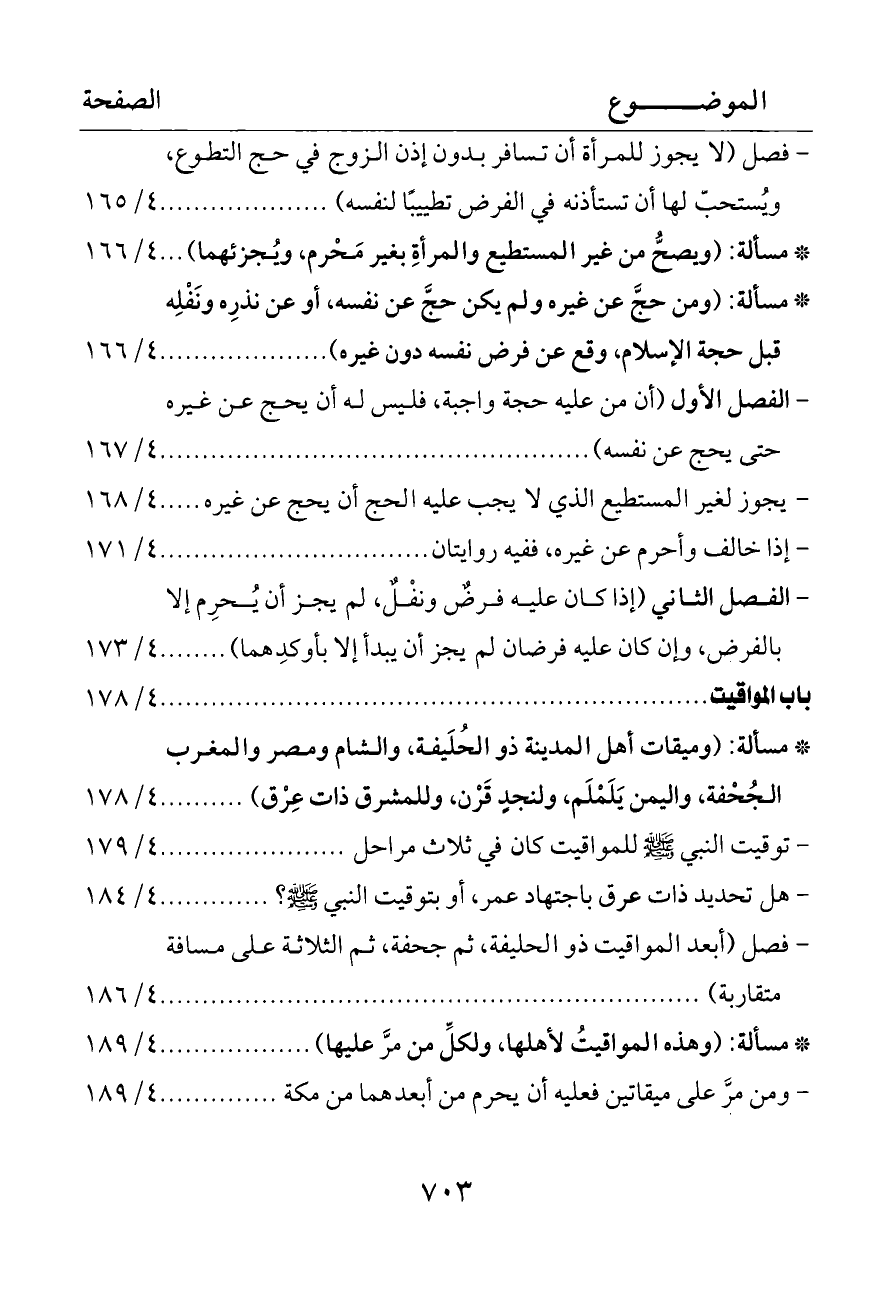 الموضـــــوع الصفحة
- فصل (لا يجوز للمرأة أن تسافر بدون إذن الزوج في حج التطوع،
ويُستحبّ لها أن تستأذنه في الفرض تطييبًا لنفسه) .................... ٤/ ١٦٥
* مسألة: (ويصحُّ من غير المستطيع والمرأةِ بغير مَحْرم، ويُجزئهما) ... ٤/ ١٦٦
* مسألة: (ومن حجَّ عن غيره ولم يكن حجَّ عن نفسه، أو عن نذرِه ونَفْلِه
قبل حجة الإسلام، وقع عن فرض نفسه دون غيره) .................... ٤/ ١٦٦
- الفصل الأول (أن من عليه حجة واجبة، فليس له أن يحج عن غيره
حتى يحج عن نفسه) .................................................. ٤/ ١٦٧
- يجوز لغير المستطيع الذي لا يجب عليه الحج أن يحج عن غيره ..... ٤/ ١٦٨
- إذا خالف وأحرم عن غيره، ففيه روايتان ................................ ٤/ ١٧١
- الفصل الثاني (إذا كان عليه فرضٌ ونفْلٌ، لم يجز أن يُحرِم إلا
بالفرض، وإن كان عليه فرضان لم يجز أن يبدأ إلا بأوكدِهما) ........ ٤/ ١٧٣
باب المواقيت ................................................................ ٤/ ١٧٨
* مسألة: (وميقات أهل المدينة ذو الحُلَيفة، والشام ومصر والمغرب
الجُحْفة، واليمن يَلَمْلَم، ولنجدٍ قَرْن، وللمشرق ذات عِرْق) .......... ٤/ ١٧٨
- توقيت النبي ﷺ للمواقيت كان في ثلاث مراحل ...................... ٤/ ١٧٩
- هل تحديد ذات عرق باجتهاد عمر، أو بتوقيت النبي ﷺ؟ ............. ٤/ ١٨٤
- فصل (أبعد المواقيت ذو الحليفة، ثم جحفة، ثم الثلاثة على مسافة
متقاربة) ................................................................ ٤/ ١٨٦
* مسألة: (وهذه المواقيتُ لأهلها، ولكلِّ من مرَّ عليها) .................. ٤/ ١٨٩
- ومن مرَّ على ميقاتين فعليه أن يحرم من أبعدهما من مكة .............. ٤/ ١٨٩
٧٠٣